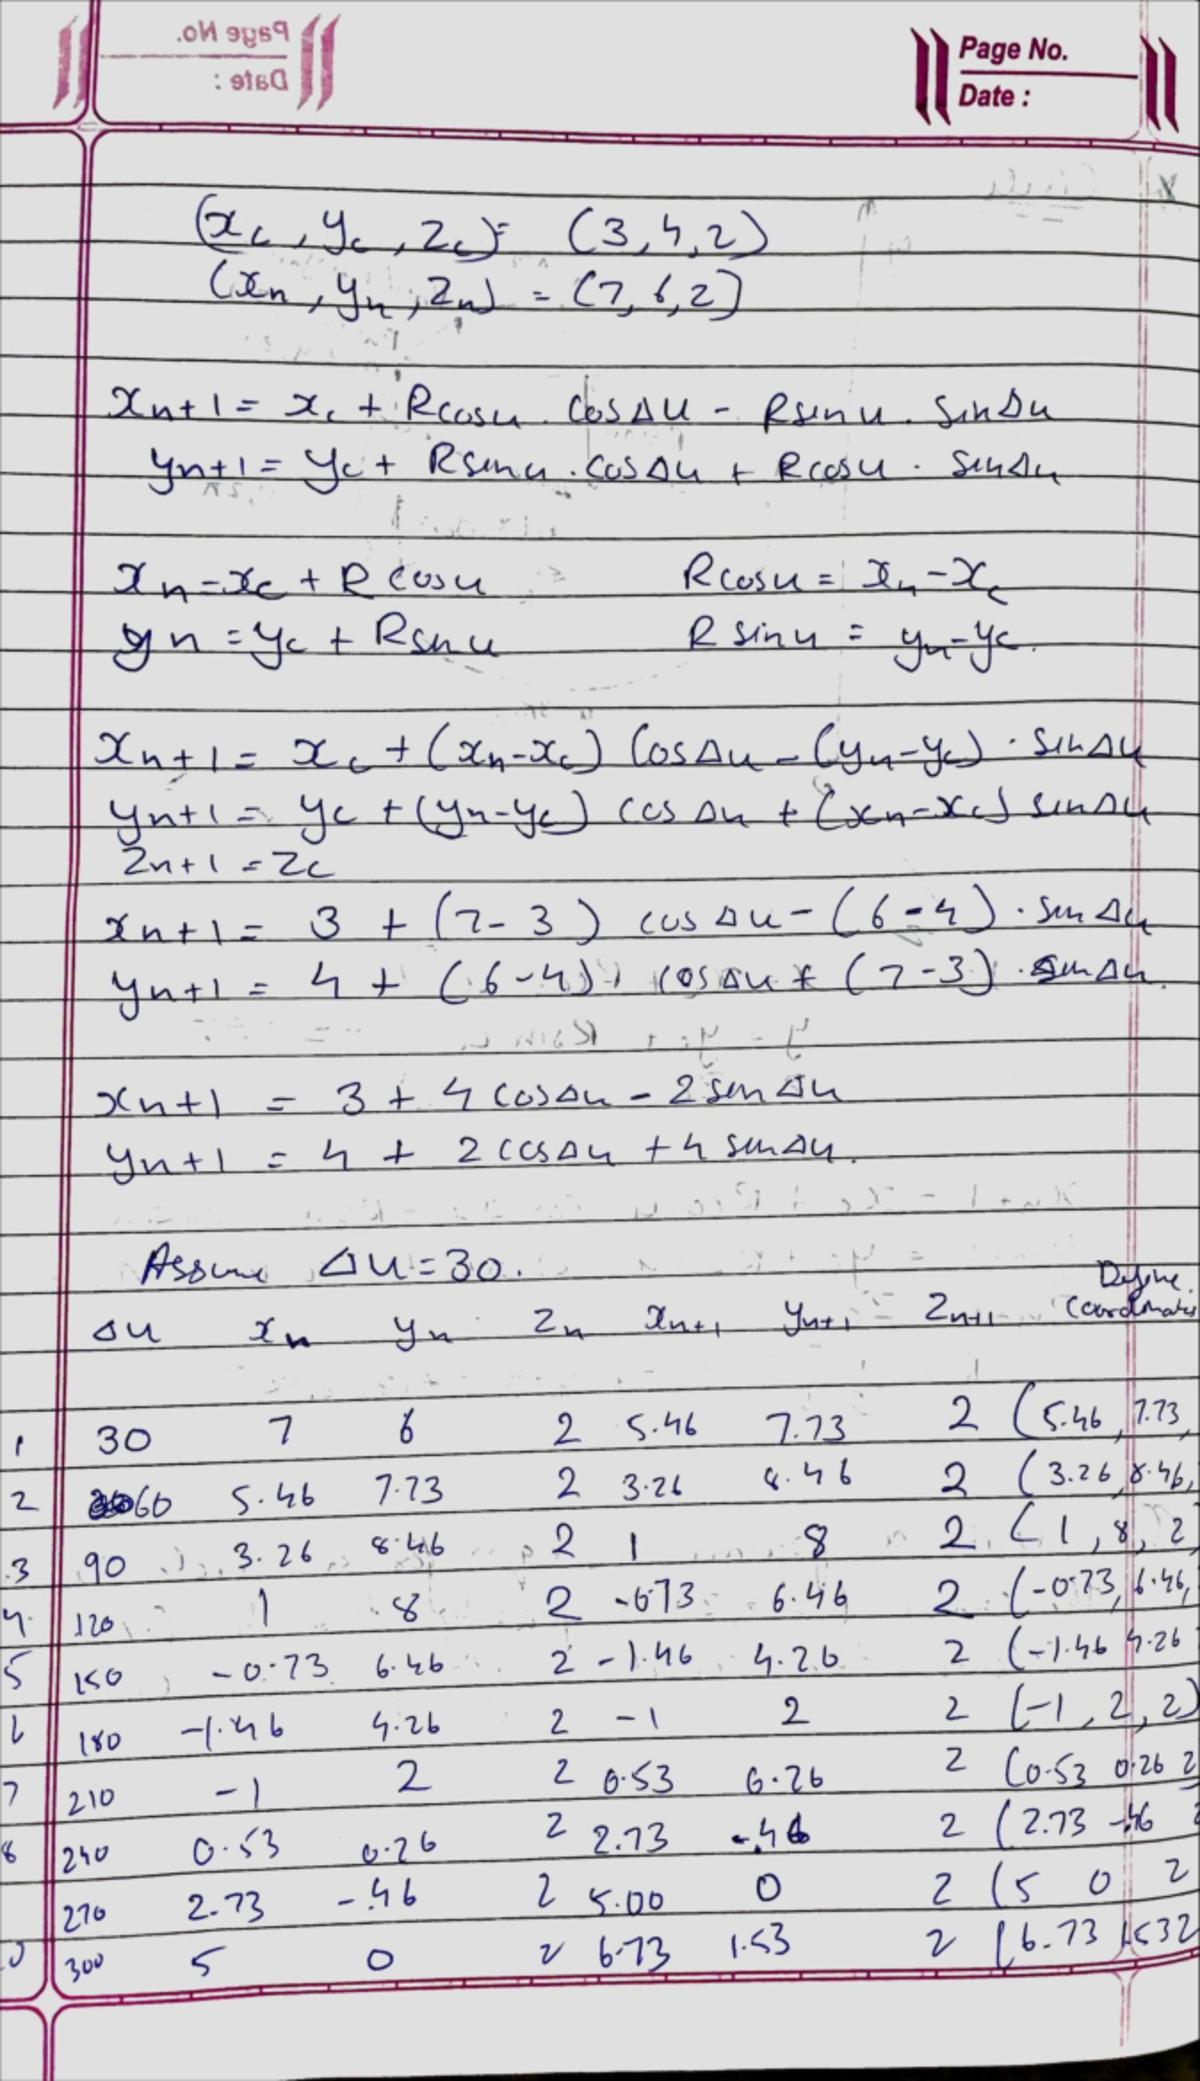 Page No.
Date :
(xc, yc, zc) = (3, 4, 2)
(xn, yn, zn) = (7, 6, 2)
xn+1 = xc + Rcosu . cosΔu - Rsinu . sinΔu
yn+1 = yc + Rsinu . cosΔu + Rcosu . sinΔu
xn = xc + Rcosu Rcosu = xn - xc
yn = yc + Rsinu Rsinu = yn - yc.
xn+1 = xc + (xn-xc) cosΔu - (yn-yc) . sinΔu
yn+1 = yc + (yn-yc) cosΔu + (xn-xc) sinΔu
zn+1 = zc
xn+1 = 3 + (7-3) cosΔu - (6-4) . sinΔu
yn+1 = 4 + (6-4) cosΔu + (7-3) . sinΔu.
xn+1 = 3 + 4cosΔu - 2sinΔu
yn+1 = 4 + 2cosΔu + 4sinΔu.
Assume Δu = 30.
Δu xn yn zn xn+1 yn+1 zn+1 Define Coordinates
1 30 7 6 2 5.46 7.73 2 (5.46, 7.73,
2 60 5.46 7.73 2 3.26 8.46 2 (3.26, 8.46,
3 90 3.26 8.46 2 1 8 2 (1, 8, 2
4. 120 1 8 2 -0.73 6.46 2 (-0.73, 6.46,
5 150 -0.73 6.46 2 -1.46 4.26 2 (-1.46 4.26
6 180 -1.46 4.26 2 -1 2 2 (-1, 2, 2)
7 210 -1 2 2 0.53 0.26 2 (0.53 0.26 2
8 240 0.53 0.26 2 2.73 -.46 2 (2.73 -.46 2
270 2.73 -.46 2 5.00 0 2 (5 0 2
0 300 5 0 2 6.73 1.53 2 (6.73 1.53 2